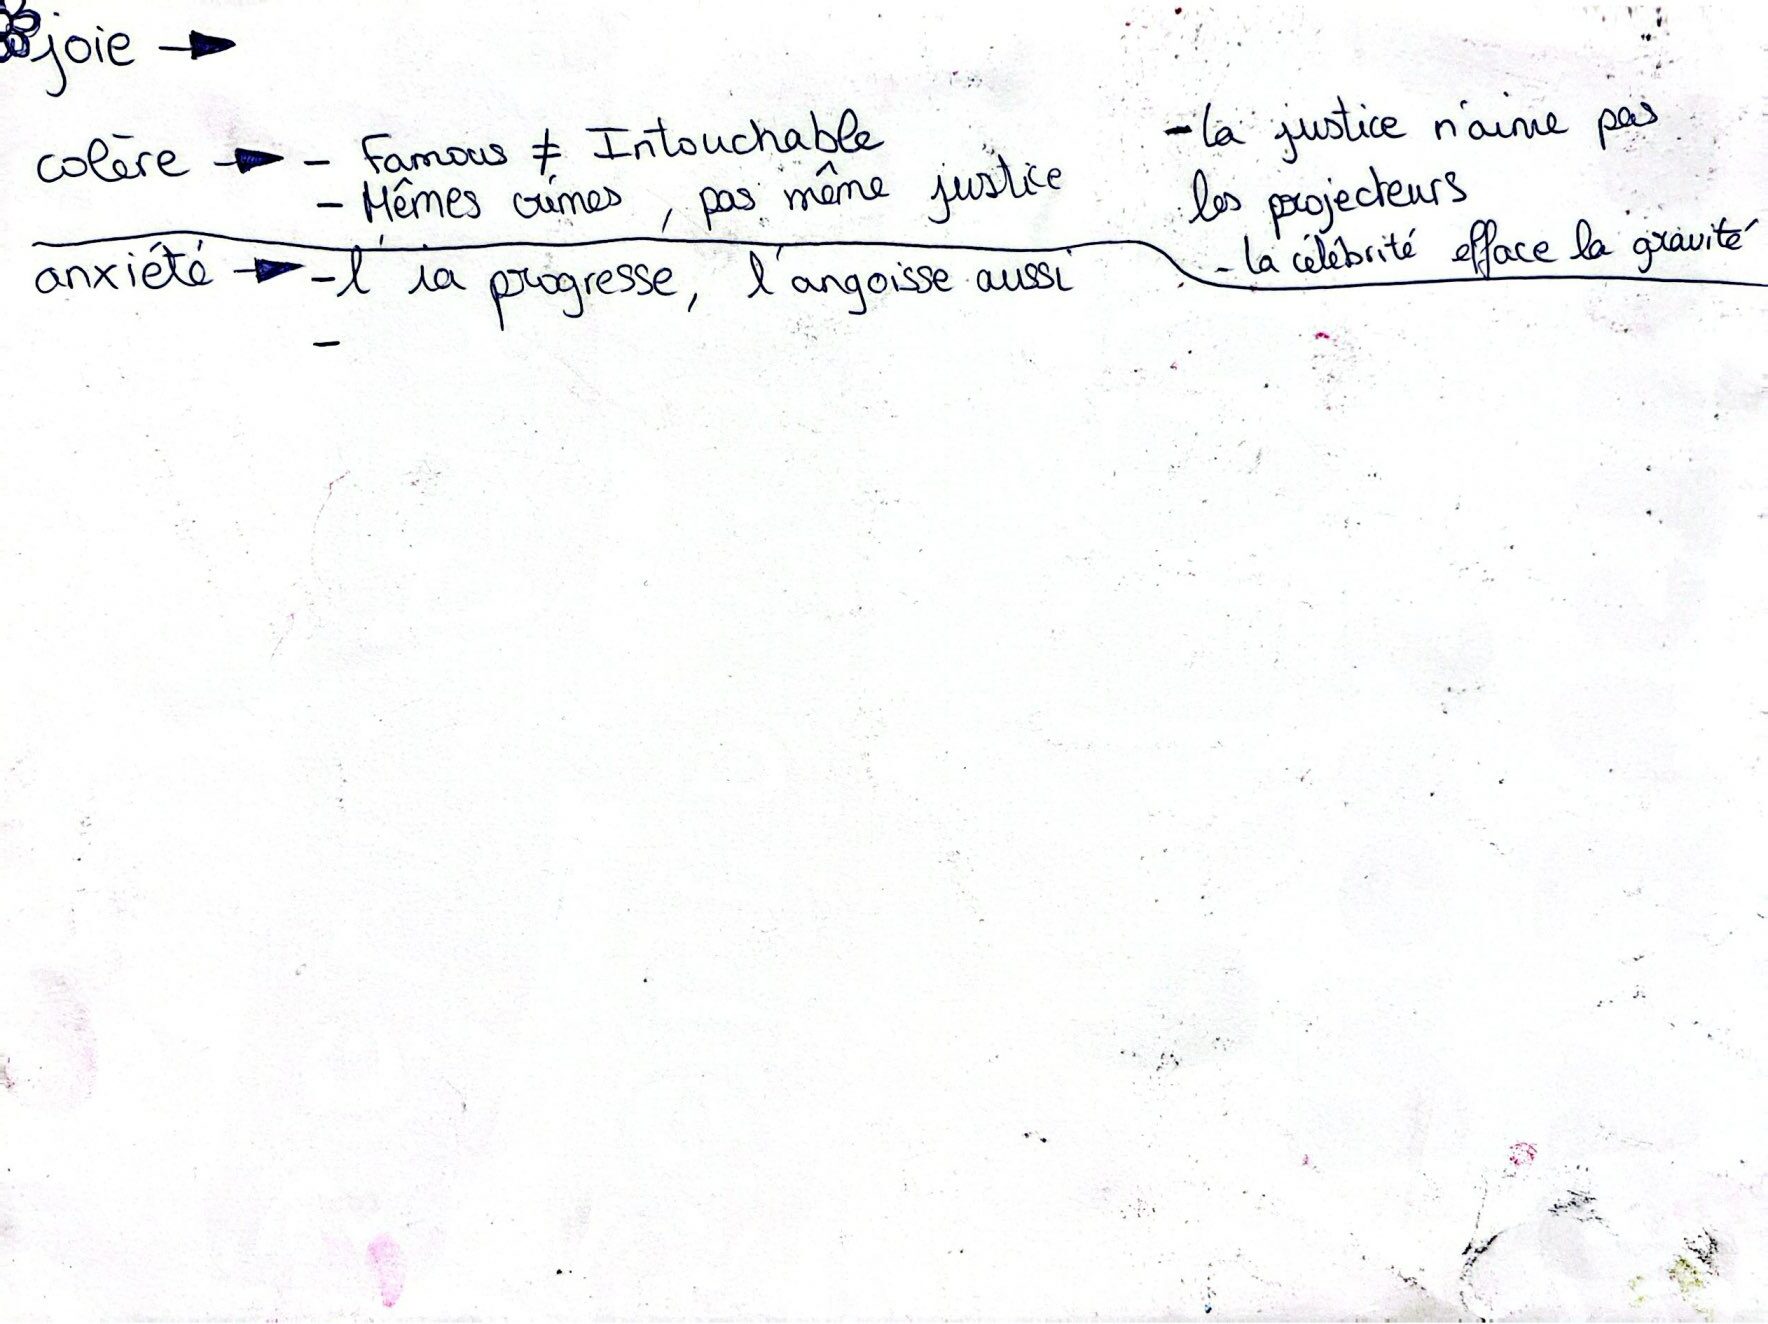 joie →
colère → - Famous ≠ Intouchable
- Mêmes crimes, pas même justice
- la justice n'aime pas
les projecteurs
- la célébrité efface la gravité
anxiété → - l'ia progresse, l'angoisse aussi
-